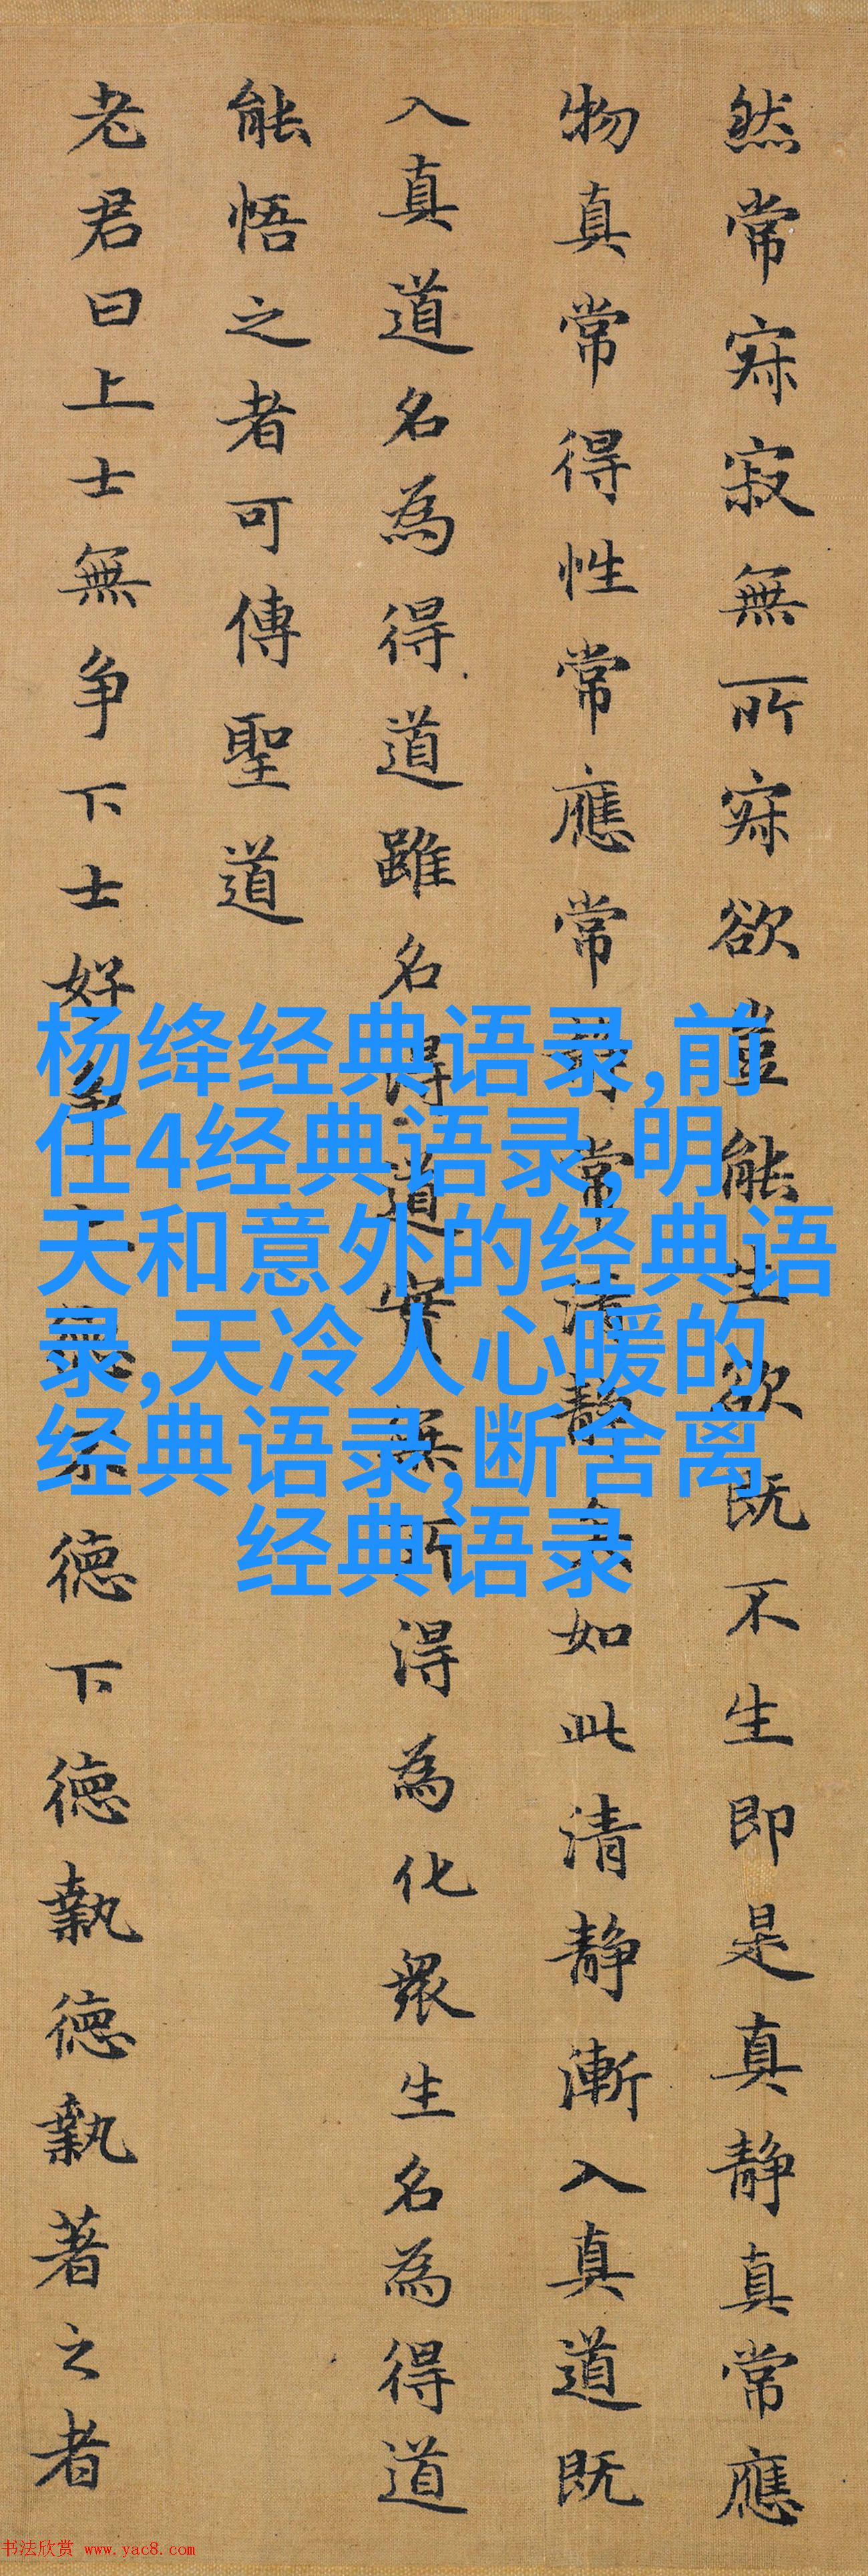 然常寂寂無所寂欲豈能生欲既不生即是真静真常應
物真常得性常應常静常清静矣如此清静漸入真道既
入真道名為得道雖名得道實無所得為化衆生名為得道
能悟之者可傳聖道
老君曰上士無争下士好争上德不德下德執德執著之者
杨绛经典语录,前
任4经典语录,明
天和意外的经典语
录,天冷人心暖的
经典语录,断舍离
经典语录
书法欣赏 www.yac8.com